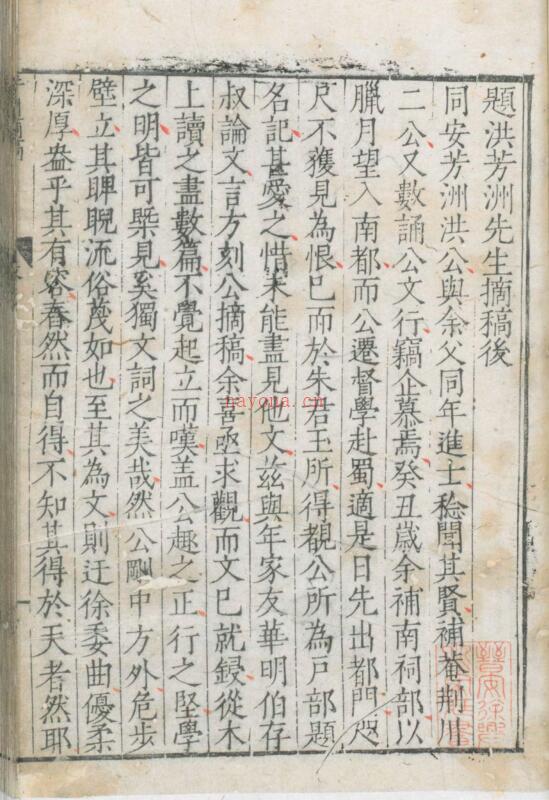 題洪芳洲先生摘稿後
同安芳洲洪公與余父同年進士稔聞其賢補菴荆川
二公又數誦公文行竊企慕焉癸丑歲余補南祠部以
臘月望入南都而公遷督學赴蜀適是日先出都門咫
尺不獲見為恨已而於朱君玉所得覩公所為戶部題
名記甚愛之惜未能盡見他文茲與年家友華明伯存
叔論文言方刻公摘稿余喜亟求觀而文已就鋟從木
上讀之盡數篇不覺起立而嘆盖公趣之正行之堅學
之明皆可槩見奚獨文詞之美哉然公剛中方外危步
壁立其睥睨流俗蔑如也至其為文則迂徐委曲優柔
深厚盎乎其有容舂然而自得不知其得於天者然耶
nayona.cn
晉安徐